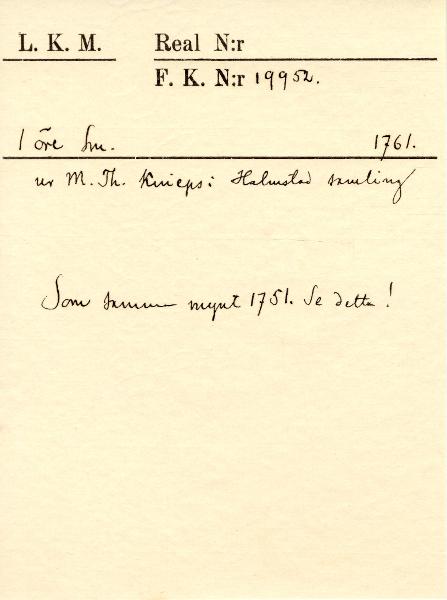 L. K. M. Real N:r
F. K. N:r 19952.
1 öre Sm. 1761.
ur M. Th. Knieps i Halmstad samling
Som samma mynt 1751. Se detta!